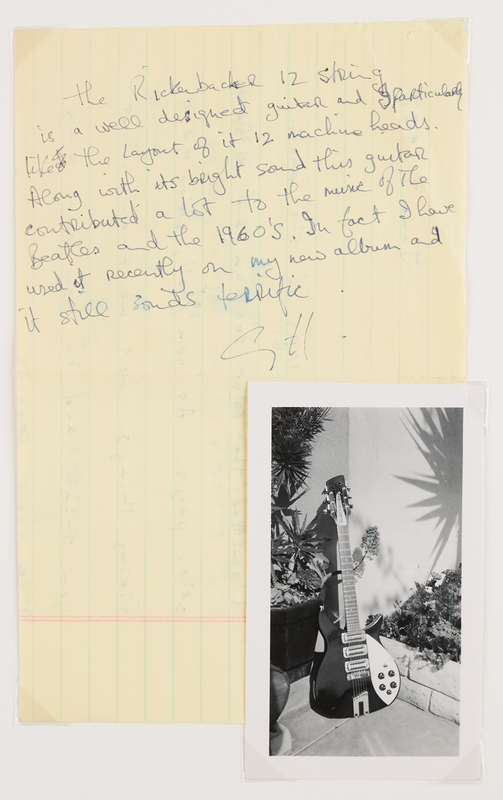 the Rickenbacker 12 string
is a well designed guitar and I particularly
like the layout of it 12 machine heads.
Along with its bright sound this guitar
contributed a lot to the music of The
Beatles and the 1960's. In fact I have
used it recently on my new album and
it still sounds terrific.
GH.